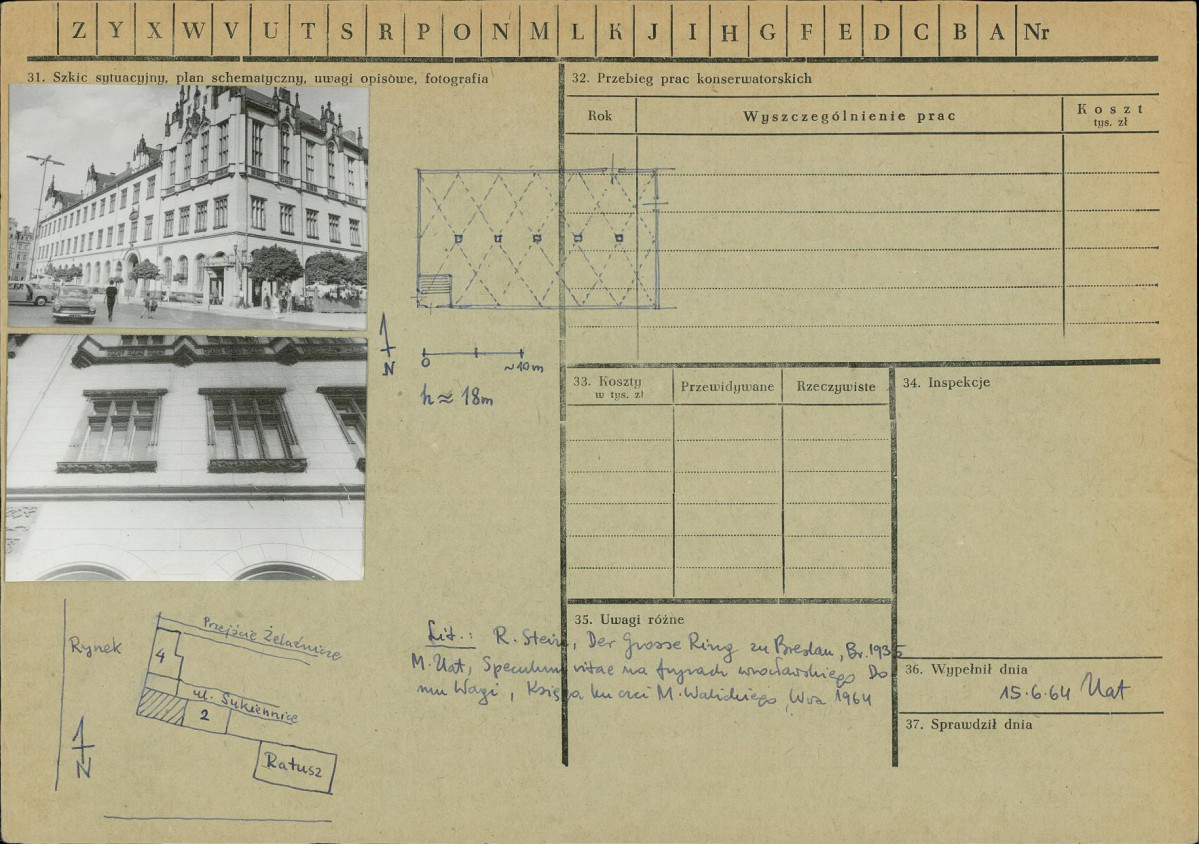 Z Y X W V U T S R P O N M L K J I H G F E D C B A Nr
31. Szkic sytuacyjny, plan schematyczny, uwagi opisowe, fotografia
N
0 ~10m
h ≈ 18m
Rynek
Przejście Żelaźnicze
4
ul. Sukiennice
2
Ratusz
N
32. Przebieg prac konserwatorskich
Rok Wyszczególnienie prac Koszt
tys. zł
33. Koszty
w tys. zł
Przewidywane Rzeczywiste
34. Inspekcje
35. Uwagi różne
Lit.: R. Stein, Der Grosse Ring zu Breslau, Br. 1935
M. Uat, Speculum vitae na fryzach wrocławskiego Do
mu Wagi, Księga ku czci M. Walickiego, Wwa 1964
36. Wypełnił dnia
15.6.64 Uat
37. Sprawdził dnia